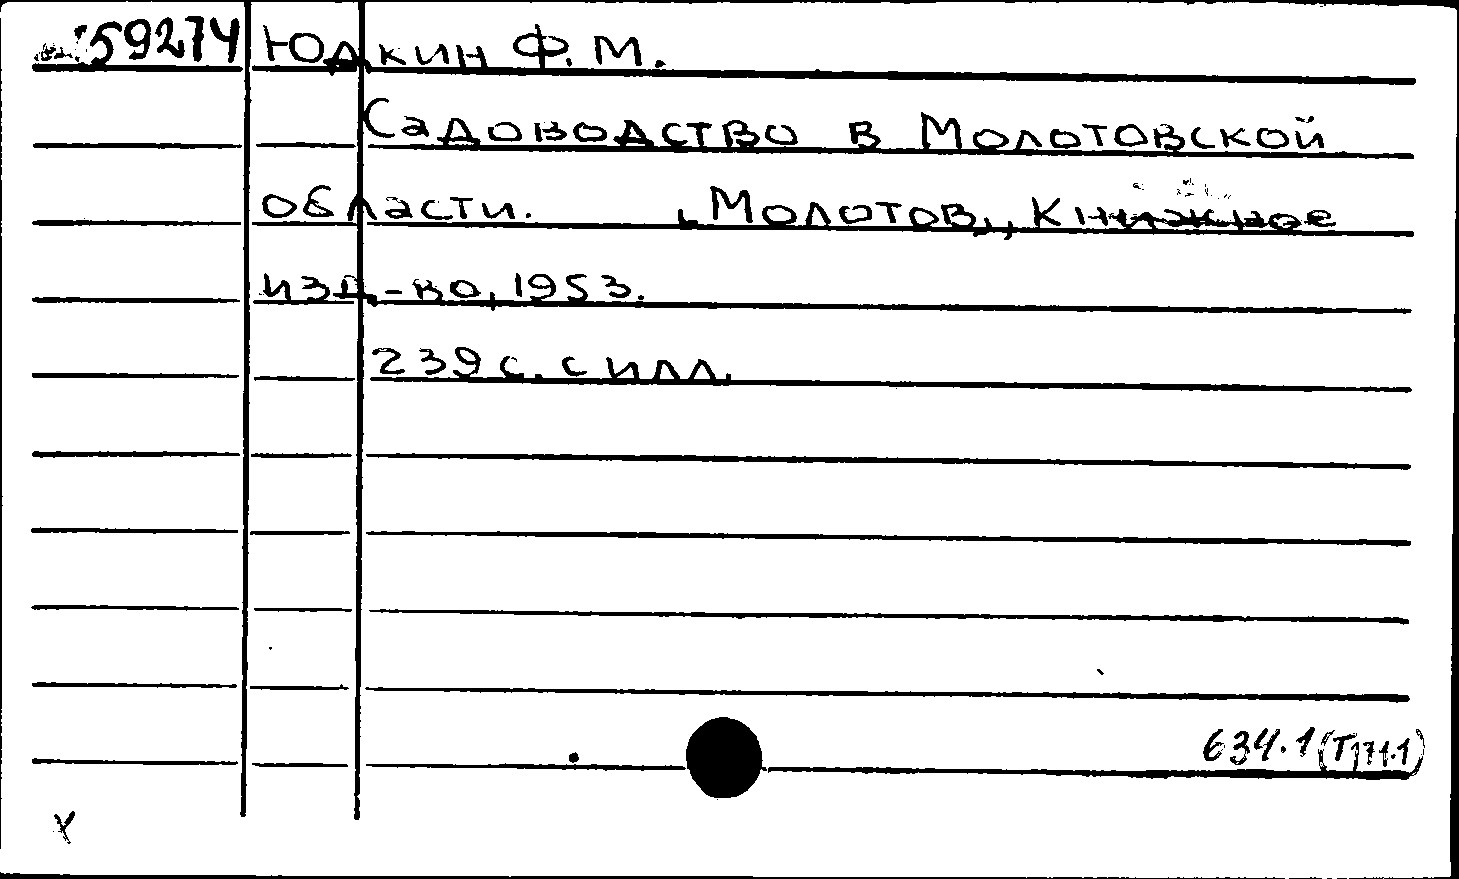 59274 Юдкин Ф. М.
Садоводство в Молотовской
области. „Молотов„, Книжное
изд-во, 1953.
239 с. с илл.
634.1 (Т171.1)
х